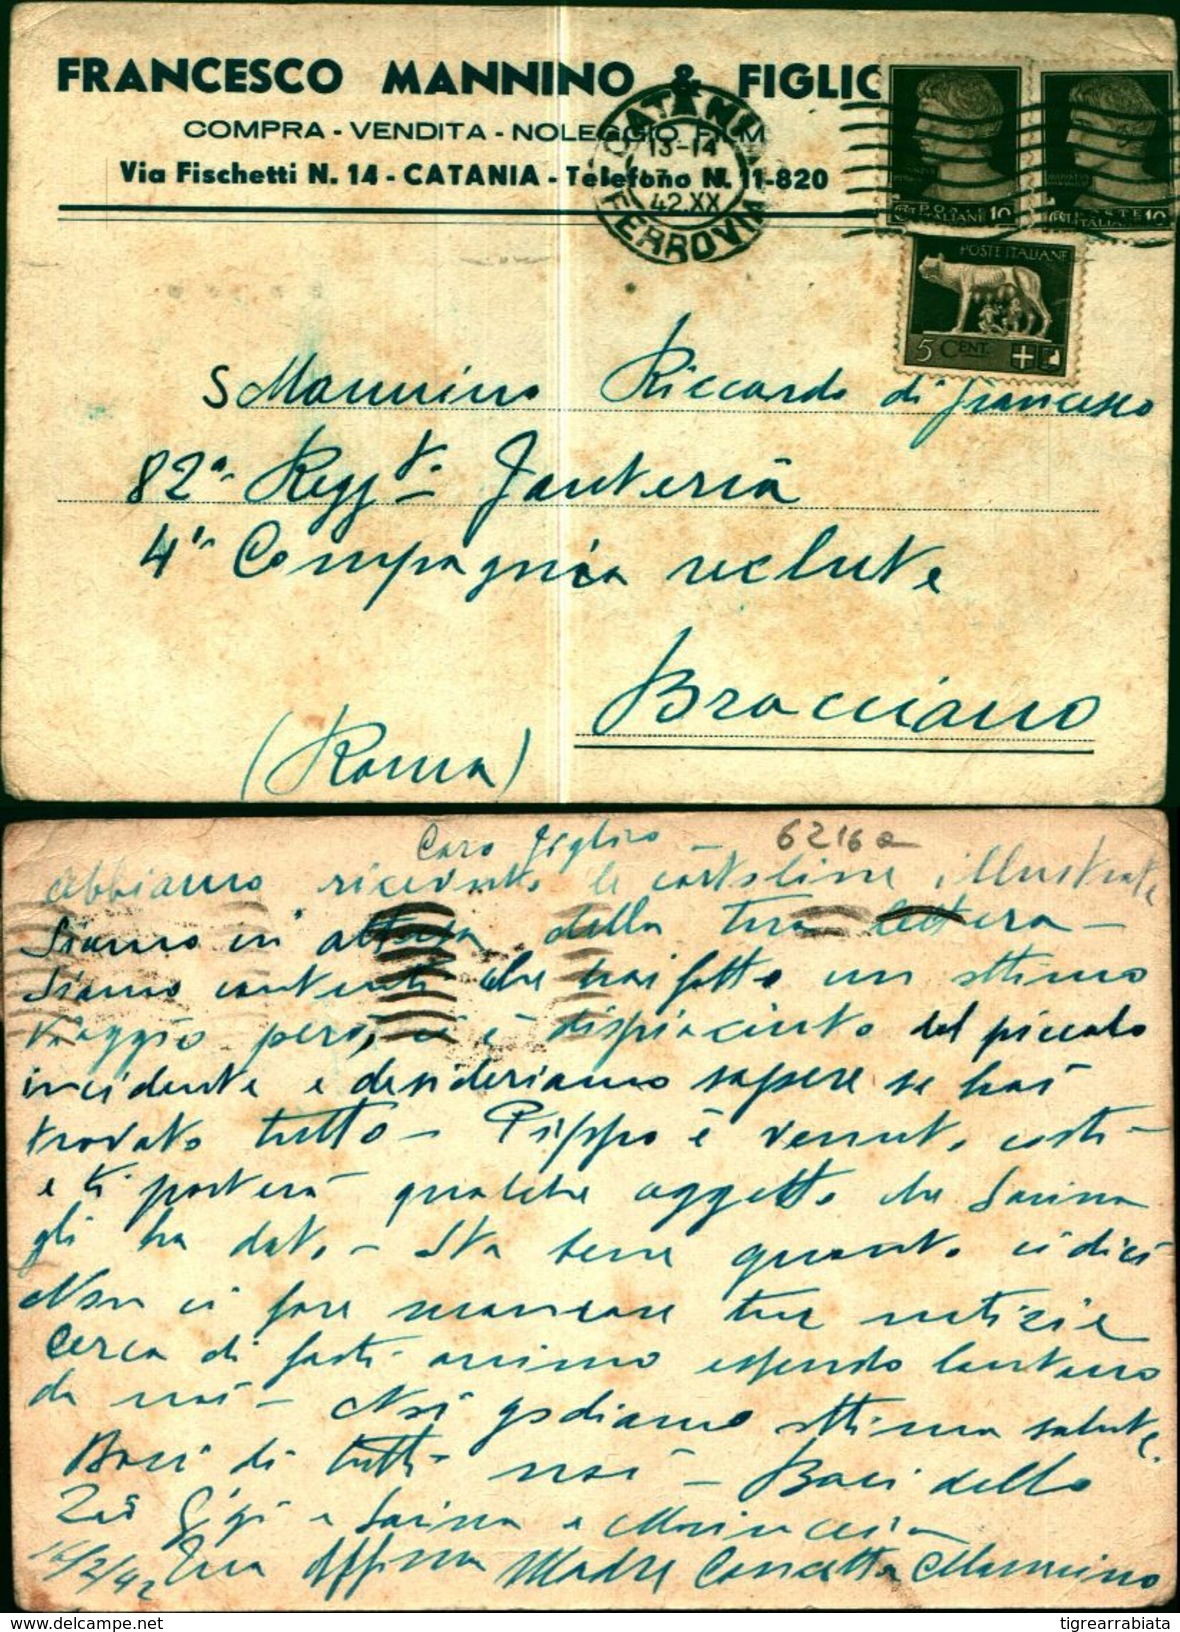 FRANCESCO MANNINO & FIGLIO
COMPRA - VENDITA - NOLEGGIO FILM
Via Fischetti N. 14 - CATANIA - Telefono N. 11-820
CATANIA
13-14
42.XX
FERROVIA
POSTE ITALIANE 10
POSTE ITALIANE 10
POSTE ITALIANE
5 CENT.
S Mannino Riccardo di Francesco
82° Regg.to Fanteria
4° Compagnia reclute
Bracciano
(Roma)
Caro figlio - 6216a
abbiamo ricevuto le cartoline illustrate
Siamo in attesa della tua lettera -
Siamo contenti che hai fatto un ottimo
viaggio però, ci è dispiaciuto del piccolo
incidente e desideriamo sapere se hai
trovato tutto - Pippo è venuto costì -
e ti porterà qualche oggetto che Sarina
gli ha dato - Sta bene quanto ci dici
Non ci fare mancare tue notizie
Cerca di farti animo essendo lontano
da noi - Noi godiamo ottima salute.
Baci di tutti noi - Baci dello
Zio Gigi e Sarina e Mariuccia
16/2/42 Tua Affma Madre Concetta Mannino
tigrearrabiata